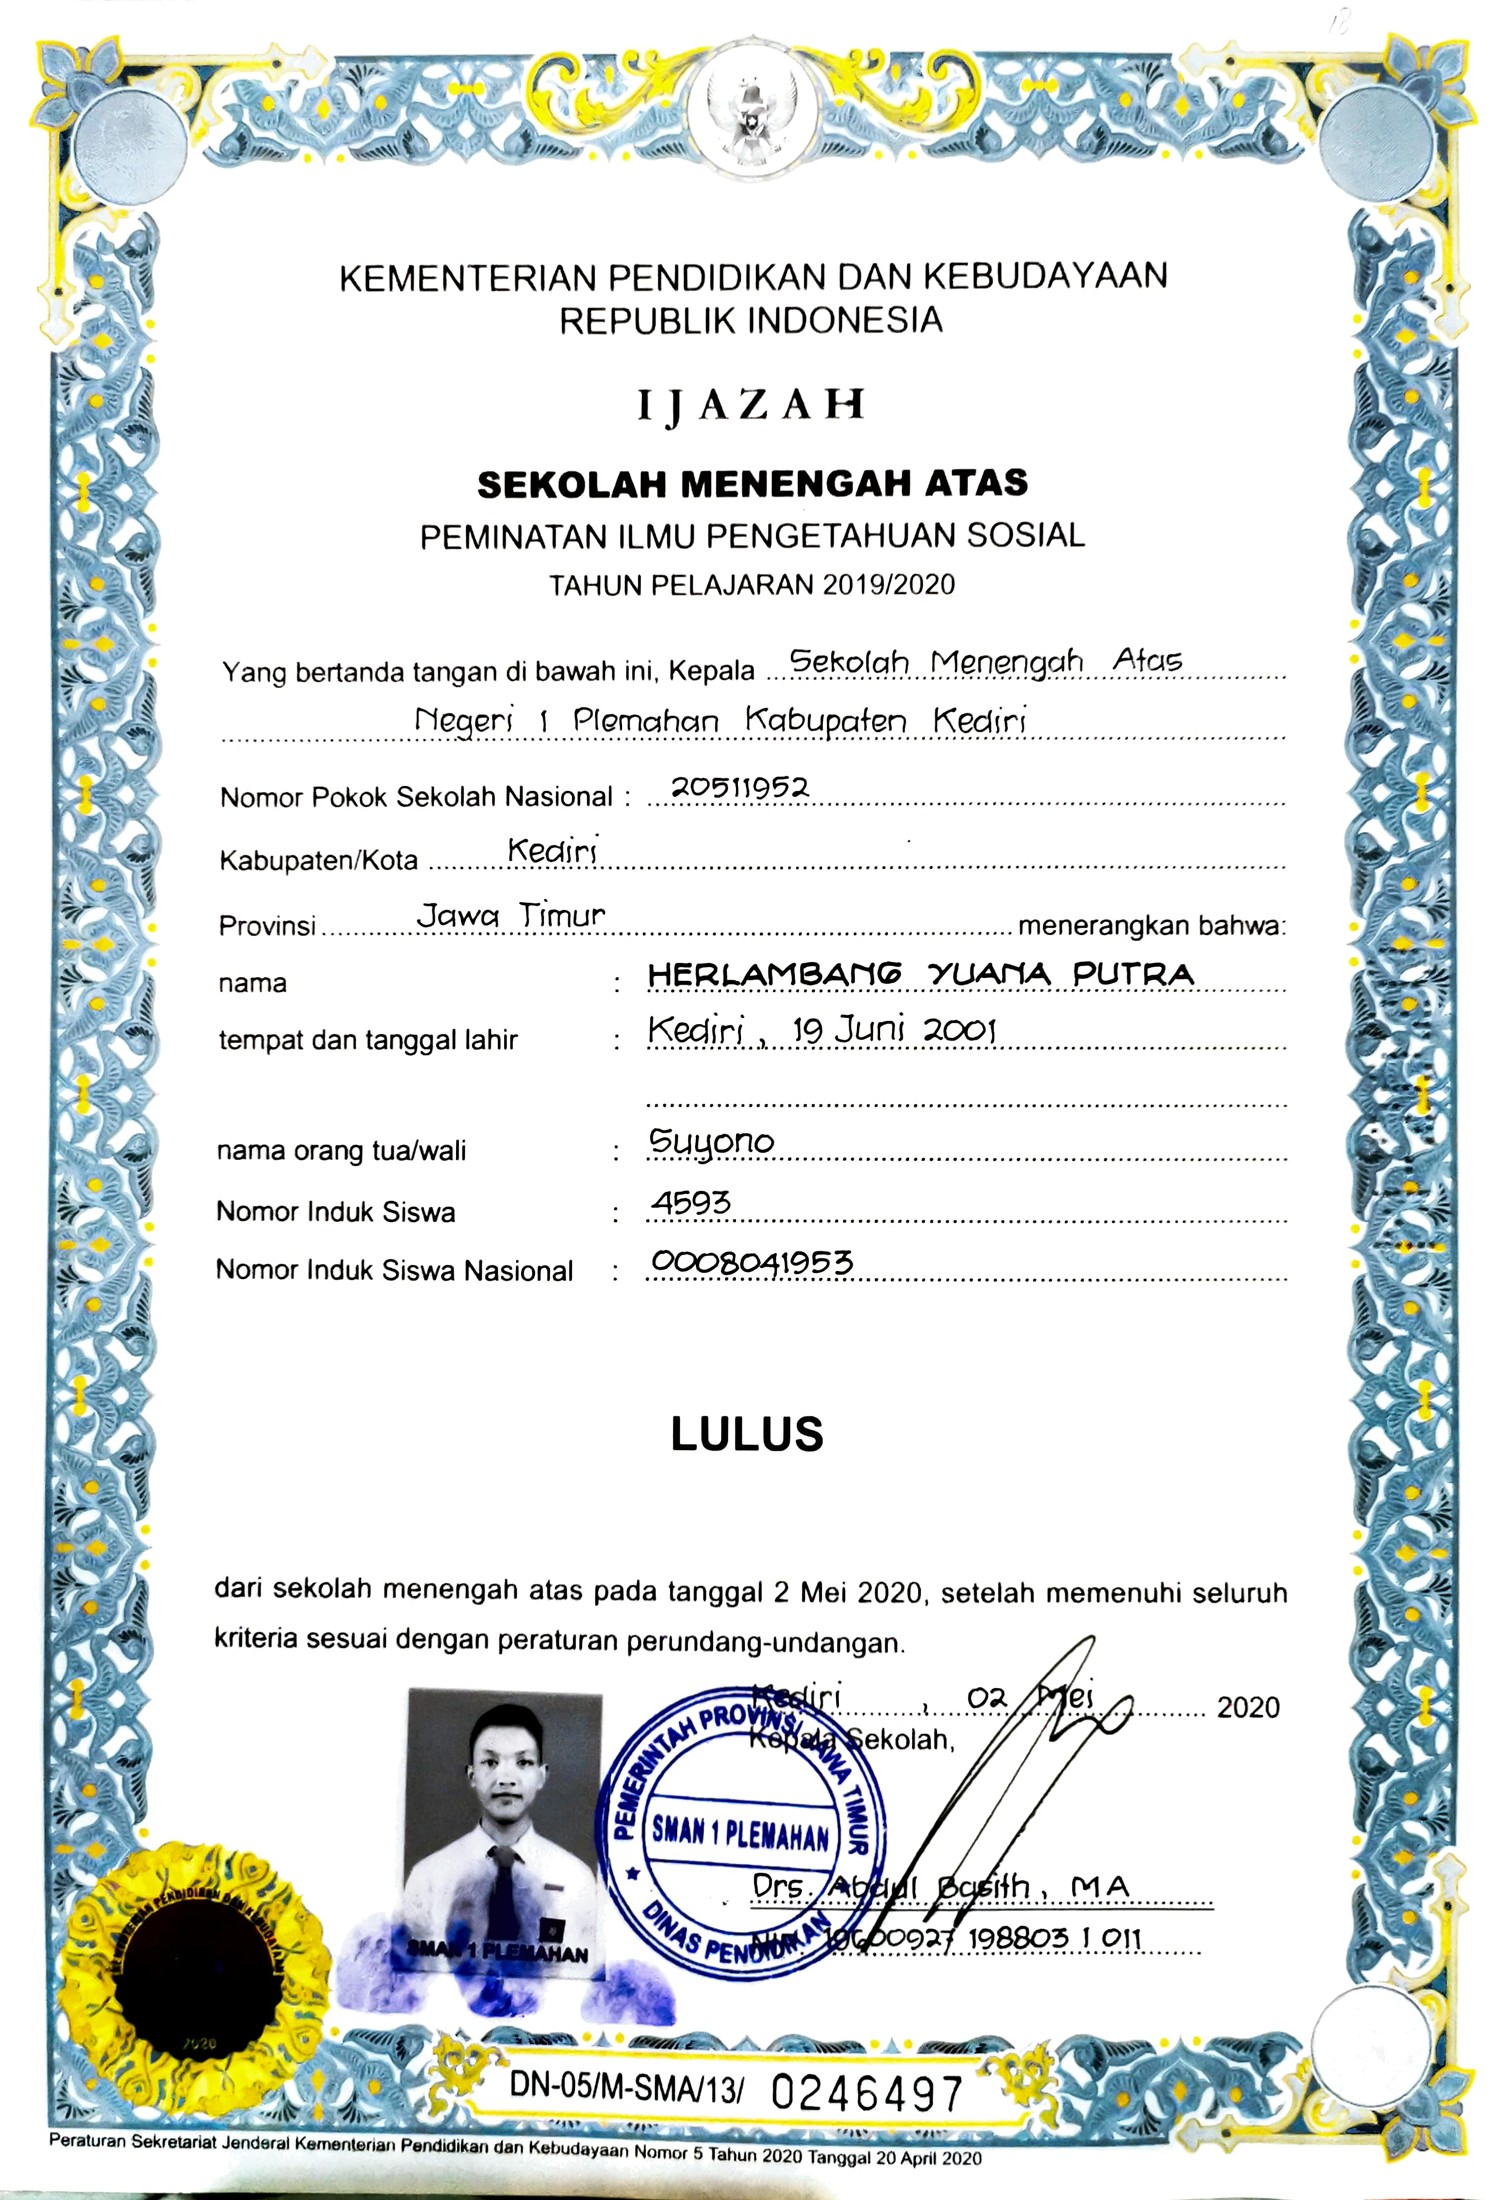 18
KEMENTERIAN PENDIDIKAN DAN KEBUDAYAAN
REPUBLIK INDONESIA
IJAZAH
SEKOLAH MENENGAH ATAS
PEMINATAN ILMU PENGETAHUAN SOSIAL
TAHUN PELAJARAN 2019/2020
Yang bertanda tangan di bawah ini, Kepala Sekolah Menengah Atas
Negeri 1 Plemahan Kabupaten Kediri
Nomor Pokok Sekolah Nasional : 20511952
Kabupaten/Kota Kediri
Provinsi Jawa Timur menerangkan bahwa:
nama : HERLAMBANG YUANA PUTRA
tempat dan tanggal lahir : Kediri, 19 Juni 2001
nama orang tua/wali : Suyono
Nomor Induk Siswa : 4593
Nomor Induk Siswa Nasional : 0008041953
LULUS
dari sekolah menengah atas pada tanggal 2 Mei 2020, setelah memenuhi seluruh
kriteria sesuai dengan peraturan perundang-undangan.
Kediri, 02 Mei 2020
Kepala Sekolah,
PEMERINTAH PROVINSI JAWA TIMUR
SMAN 1 PLEMAHAN
DINAS PENDIDIKAN
Drs. Abdul Basith, MA
NIP. 19600927 198803 1 011
SMAN 1 PLEMAHAN
KEMENTERIAN PENDIDIKAN DAN KEBUDAYAAN
2020
DN-05/M-SMA/13/ 0246497
Peraturan Sekretariat Jenderal Kementerian Pendidikan dan Kebudayaan Nomor 5 Tahun 2020 Tanggal 20 April 2020